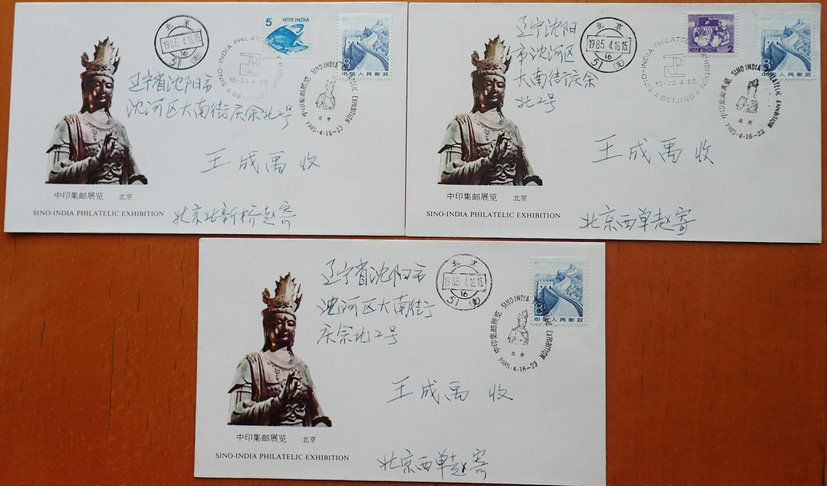 北京
1985.4.16.15
16
51(支)
5
भारत INDIA
8
中国人民邮政
SINO-INDIA PHILATELIC EXHIBITION
16-23.4.85
BEIJING
中印集邮展览 SINO-INDIA PHILATELIC EXHIBITION
北京
1985·4·16-23
辽宁省沈阳市
沈河区大南街庆余
北2号
王成禹 收
中印集邮展览 北京
SINO-INDIA PHILATELIC EXHIBITION
北京北新桥赵寄
辽宁沈阳
市沈河区
大南街庆余
北2号
北京
1985.4.16.15
16
51(支)
2
8
中国人民邮政
SINO-INDIA PHILATELIC EXHIBITION
16-23.4.85
BEIJING
中印集邮展览 SINO-INDIA PHILATELIC EXHIBITION
北京
1985·4·16-23
王成禹 收
中印集邮展览 北京
SINO-INDIA PHILATELIC EXHIBITION
北京西单赵寄
辽宁省沈阳市
沈河区大南街
庆余北2号
北京
1985.4.16.15
16
51(支)
8
中国人民邮政
中印集邮展览 SINO-INDIA PHILATELIC EXHIBITION
北京
1985·4·16-23
王成禹 收
中印集邮展览 北京
SINO-INDIA PHILATELIC EXHIBITION
北京西单赵寄